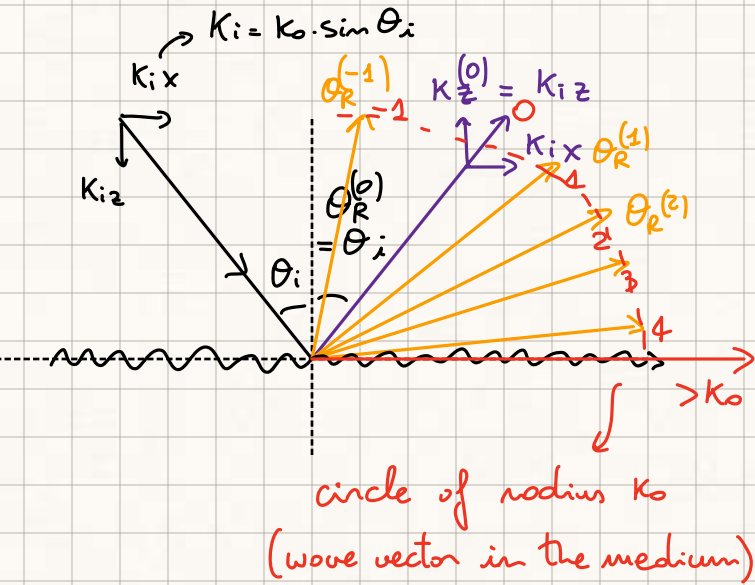 Ki = Ko · sin θi
Kix
Kiz
θR^(-1)
-1
Kz^(0) = Kiz
0
Kix
θR^(1)
1
θR^(0)
= θi
θR^(2)
2
3
θi
4
> Ko
circle of radius Ko
(wave vector in the medium)